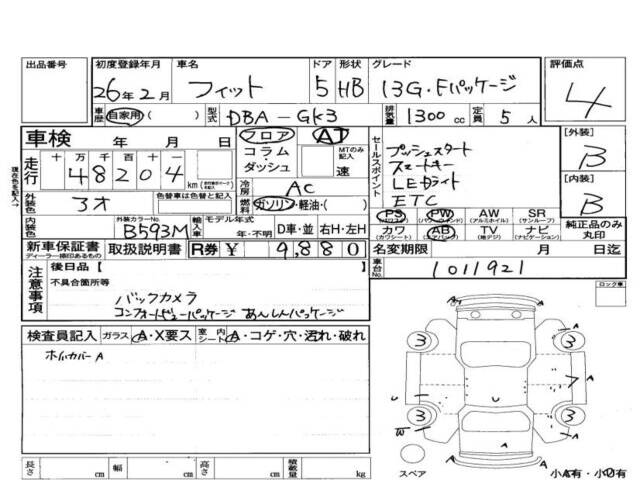 出品番号 初度登録年月 車名 ドア 形状 グレード 評価点
26年2月 フィット 5 HB 13G・Fパッケージ 4
車歴 自家用( ) 型式 DBA-GK3 排気量 1300cc 定員 5人
車検 年 月 日 フロア・コラム・ダッシュ AT MTのみ記入 速
セールスポイント プッシュスタート
スマートキー
LEDライト
ETC
[外装] B
[内装] B
走行 十 万 千 百 十 一
48204 km
冷房 AC
外装色 色替車は色替と記入 アオ
ガソリン・軽油・( )
内装色 外装カラーNo. B593M 輸入車 モデル年式 年・不明 D車・並 右H・左H
PS (パワステ) PW (パワーウィンドウ) AW (アルミホイル) SR (サンルーフ)
カワ (カワシート) AB (エアバッグ) TV (地デジ) ナビ (ナビゲーション)
純正品のみ丸印
新車保証書 ディーラー捺印あるもの 取扱説明書 R券 ¥ 9,880
名変期限 月 日迄
車台No. 1011921
現在色を記入→
注意事項 後日品【 】
不具合箇所等
バックカメラ
コンフォートビューパッケージ あんしんパッケージ
ロック車
検査員記入 ガラス A・X要ス 室内シート A・コゲ・穴・汚れ・破れ
ホイルカバーA
A A
3 3
A
U U
3 3
W A
A
スペア
小A有・小U有
長さ cm 幅 cm 高さ cm 積載量 kg